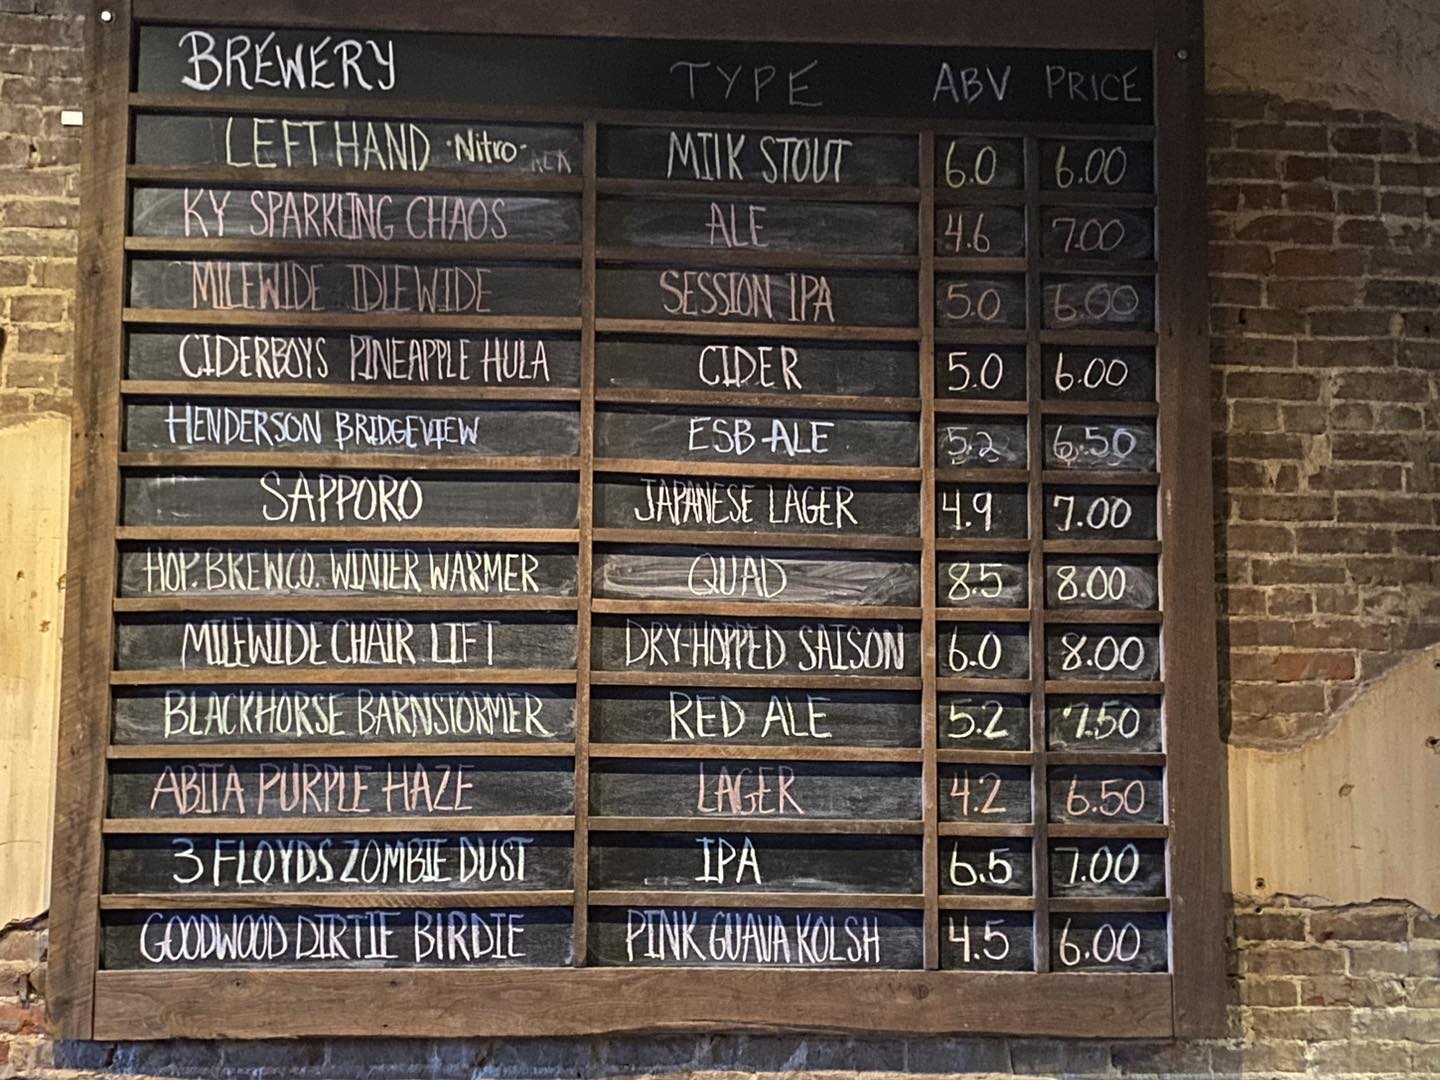 BREWERY TYPE ABV PRICE
LEFT HAND ·Nitro· MILK STOUT 6.0 6.00
KY SPARKLING CHAOS ALE 4.6 7.00
MILEWIDE IDLEWIDE SESSION IPA 5.0 6.00
CIDERBOYS PINEAPPLE HULA CIDER 5.0 6.00
HENDERSON BRIDGEVIEW ESB-ALE 5.2 6.50
SAPPORO JAPANESE LAGER 4.9 7.00
HOP. BREW CO. WINTER WARMER QUAD 8.5 8.00
MILEWIDE CHAIR LIFT DRY-HOPPED SAISON 6.0 8.00
BLACKHORSE BARNSTORMER RED ALE 5.2 7.50
ABITA PURPLE HAZE LAGER 4.2 6.50
3 FLOYDS ZOMBIE DUST IPA 6.5 7.00
GOODWOOD DIRTIE BIRDIE PINK GUAVA KOLSH 4.5 6.00